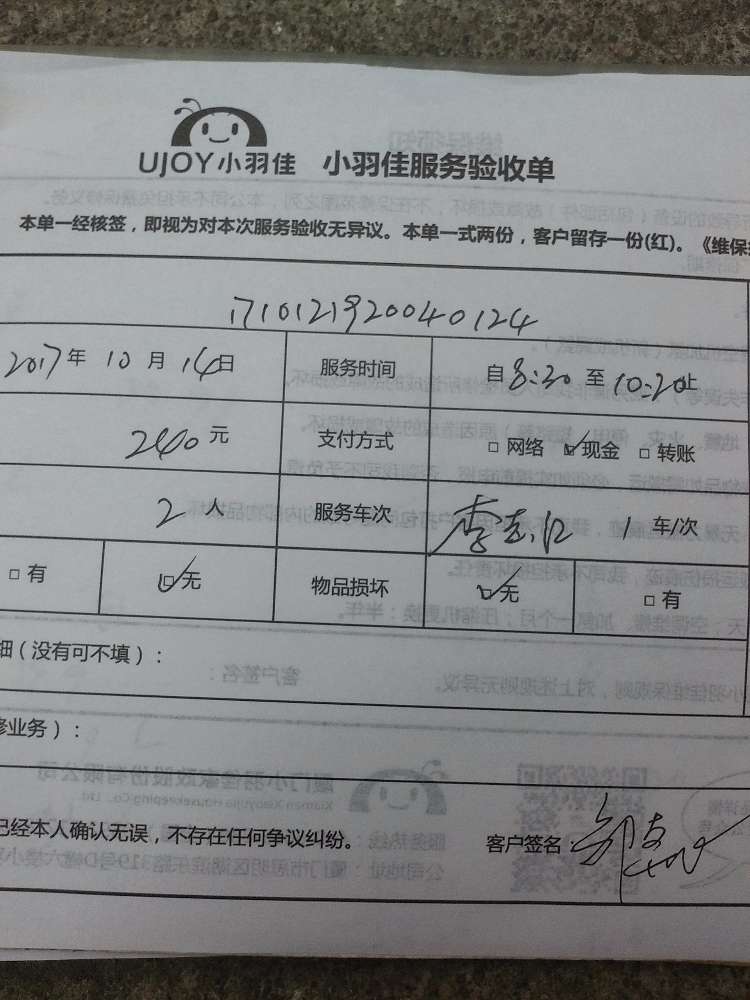 UJOY小羽佳 小羽佳服务验收单
本单一经核签，即视为对本次服务验收无异议。本单一式两份，客户留存一份(红)。《维保
1710121920040124
2017年 10月 14日 服务时间 自 8:30 至 10:20止
240元 支付方式 □ 网络 ☑现金 □ 转账
2人 服务车次 李志江 1 车/次
□ 有 ☑无 物品损坏 ☑无 □ 有
细（没有可不填）：
修业务）：
已经本人确认无误，不存在任何争议纠纷。 客户签名：